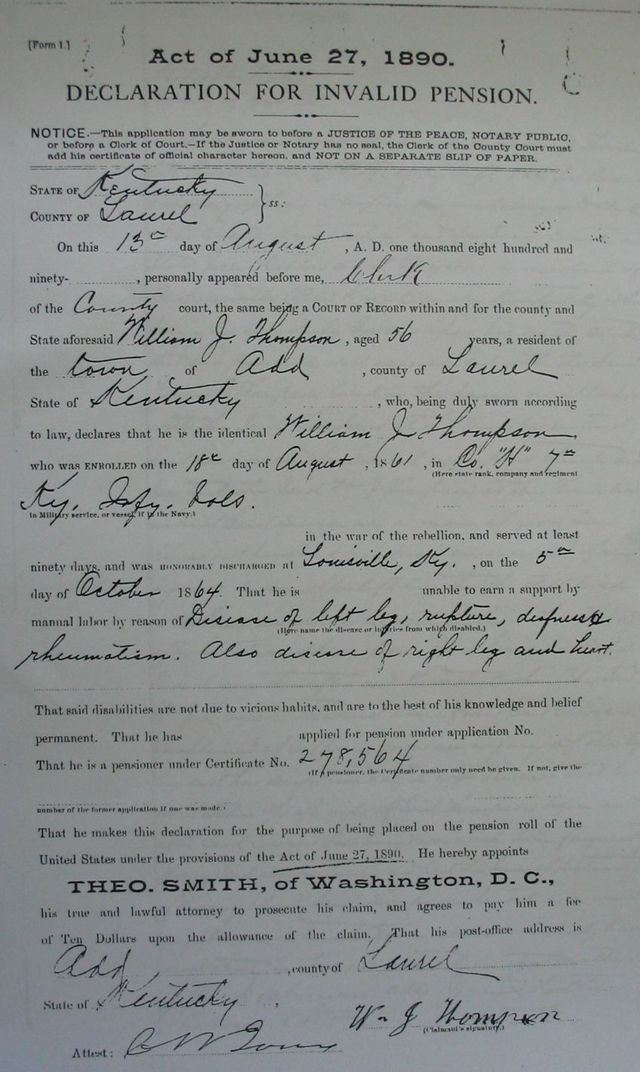 [Form 1.]
Act of June 27, 1890.
DECLARATION FOR INVALID PENSION.
NOTICE.—This application may be sworn to before a JUSTICE OF THE PEACE, NOTARY PUBLIC,
or before a Clerk of Court.—If the Justice or Notary has no seal, the Clerk of the County Court must
add his certificate of official character hereon, and NOT ON A SEPARATE SLIP OF PAPER.
STATE OF Kentucky
COUNTY OF Laurel } ss:
On this 13th day of August, A. D. one thousand eight hundred and
ninety- , personally appeared before me, Clerk
of the County court, the same being a COURT OF RECORD within and for the county and
State aforesaid William J. Thompson, aged 56 years, a resident of
the town of Add, county of Laurel
State of Kentucky, who, being duly sworn according
to law, declares that he is the identical William J Thompson,
who was ENROLLED on the 18th day of August, 1861, in Co. "H" 7th
(Here state rank, company and regiment
Ky. Infy. Vols.
in Military service, or vessel, if in the Navy.)
in the war of the rebellion, and served at least
ninety days, and was HONORABLY DISCHARGED at Louisville, Ky., on the 5th
day of October 1864. That he is unable to earn a support by
manual labor by reason of Disease of left leg, rupture, deafness &
(Here name the disease or injuries from which disabled.)
rheumatism. Also disease of right leg and heart.
That said disabilities are not due to vicious habits, and are to the best of his knowledge and belief
permanent. That he has applied for pension under application No.
That he is a pensioner under Certificate No. 278,564
(If a pensioner, the Certificate number only need be given. If not, give the
number of the former application if one was made.)
That he makes this declaration for the purpose of being placed on the pension roll of the
United States under the provisions of the Act of June 27, 1890. He hereby appoints
THEO. SMITH, of Washington, D. C.,
his true and lawful attorney to prosecute his claim, and agrees to pay him a fee
of Ten Dollars upon the allowance of the claim. That his post-office address is
Add, county of Laurel
State of Kentucky,
Wm J Thompson
(Claimant's signature.)
Attest: